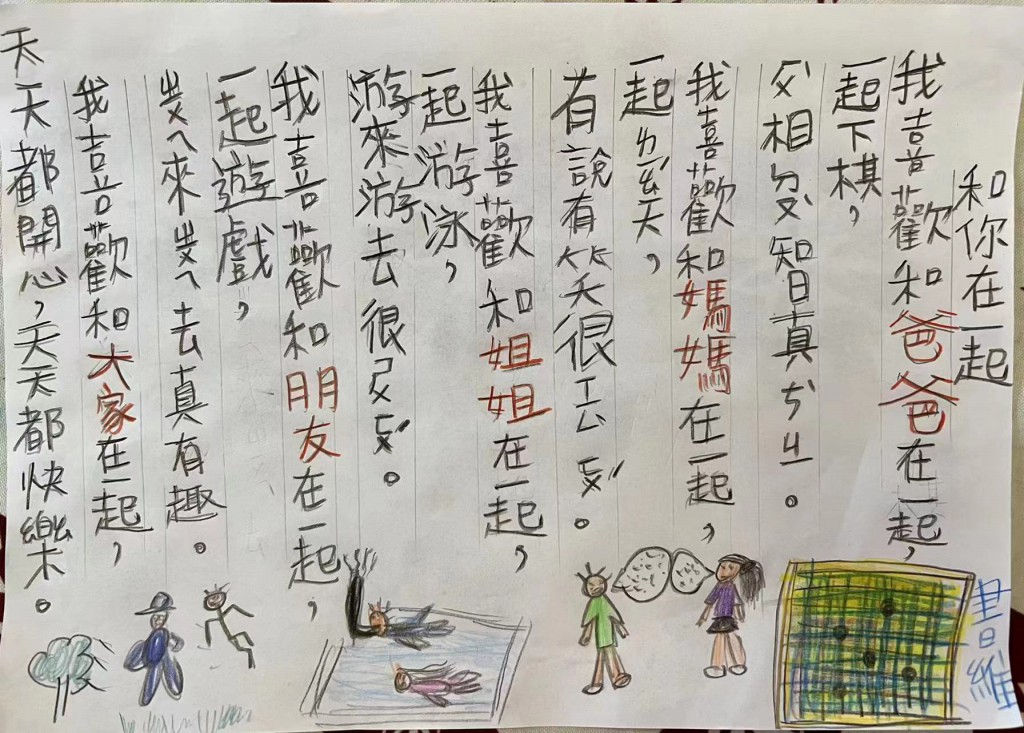 和你在一起
我喜歡和爸爸在一起，
一起下棋，
相ㄉㄡ智真ㄘㄐㄧ。
我喜歡和媽媽在一起，
一起ㄌㄧㄠˊ天，
有說有笑很。
我喜歡和姐姐在一起，
一起游泳，
游來游去很。
我喜歡和朋友在一起，
一起遊戲，
ㄓㄨㄟ來ㄓㄨㄟ去真有趣。
我喜歡和大家在一起，
天天都開心，天天都快樂。
書維